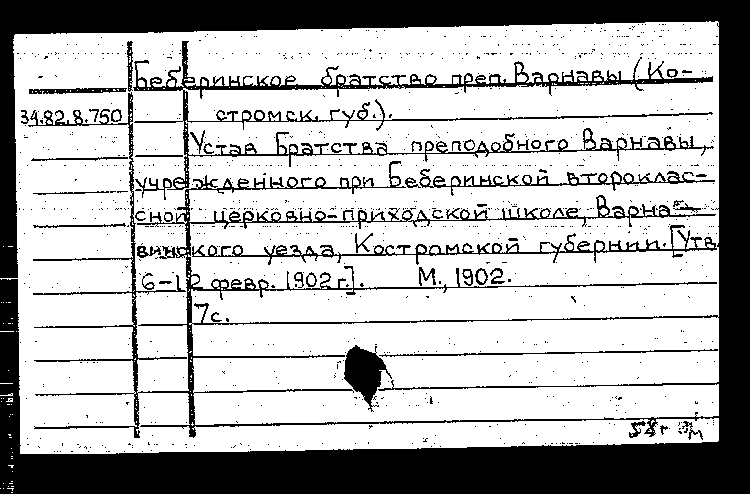 Беберинское братство преп. Варнавы (Ко-
34.82.8.750 стромск. губ.).
Устав Братства преподобного Варнавы,
учрежденного при Беберинской второклас-
сной церковно-приходской школе, Варна-
винского уезда, Костромской губернии. [Утв.
6-12 февр. 1902 г.]. М., 1902.
7с.
58г